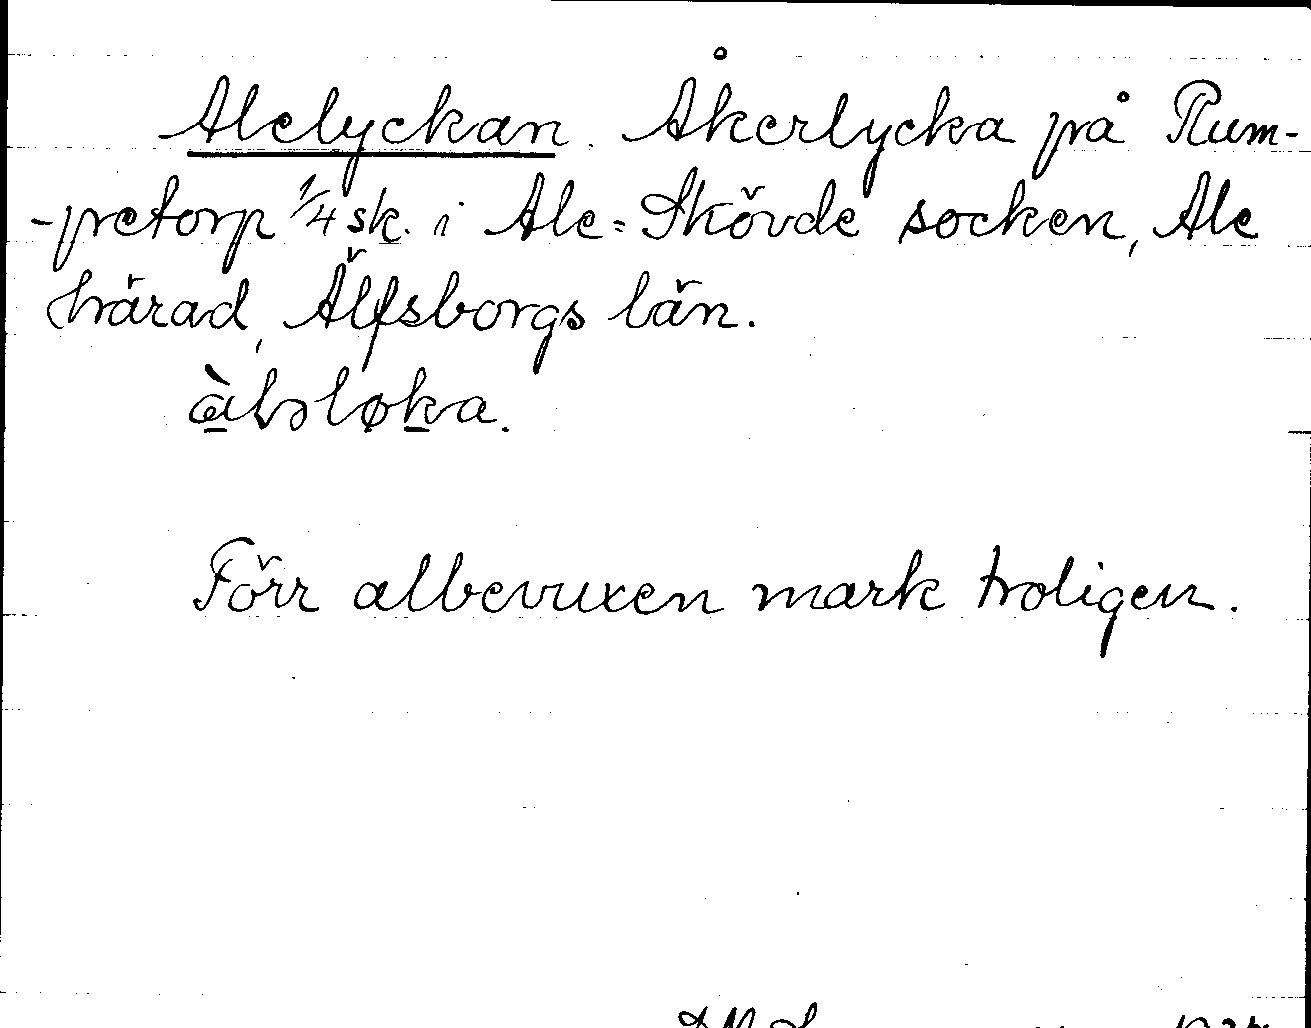 Alelyckan. Åkerlycka på Rum-
-petorp 1/4 sk. i Ale-Skövde socken, Ale
härad, Älfsborgs län.
Förr albevuxen mark troligen.